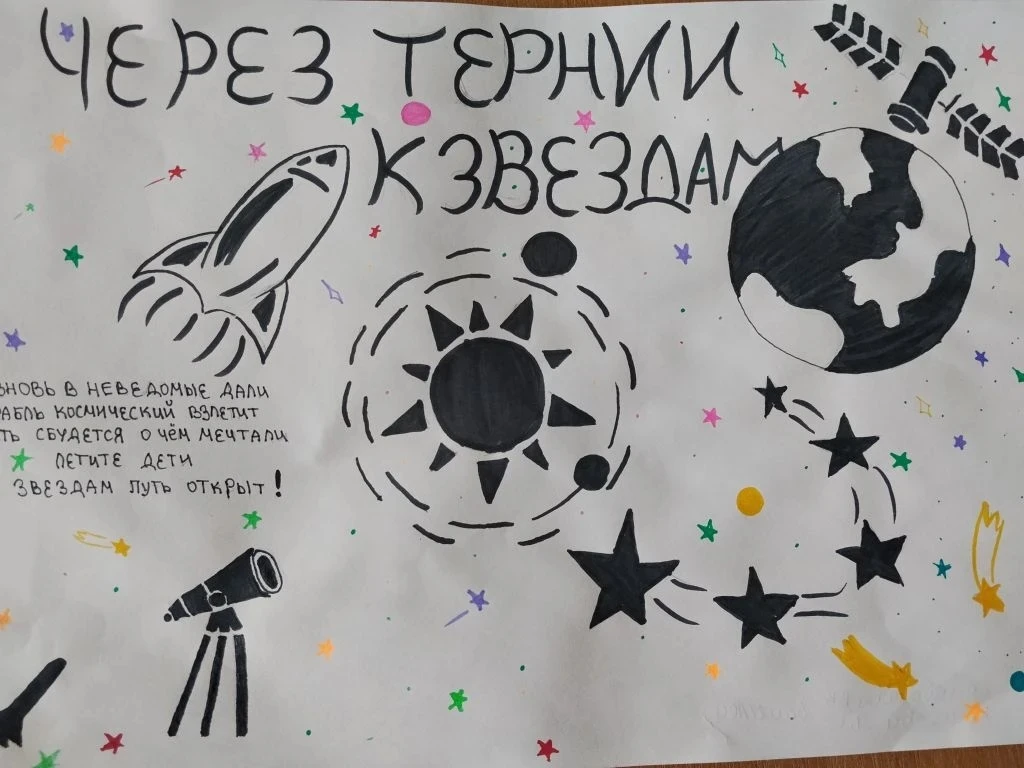 ЧЕРЕЗ ТЕРНИИ
К ЗВЕЗДАМ
ВНОВЬ В НЕВЕДОМЫЕ ДАЛИ
РАБЛЬ КОСМИЧЕСКИЙ ВЗЛЕТИТ
ТЬ СБУДЕТСЯ О ЧЁМ МЕЧТАЛИ
ЛЕТИТЕ ДЕТИ
ЗВЕЗДАМ ПУТЬ ОТКРЫТ!